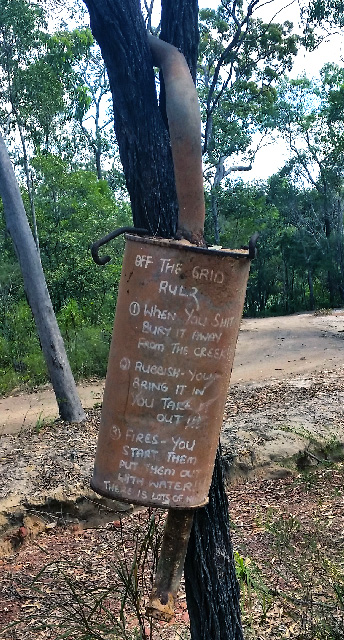 OFF THE GRID
RULZ
① WHEN YOU SHIT
BURY IT AWAY
FROM THE CREEK!
② RUBBISH - YOU
BRING IT IN
YOU TAKE IT
OUT !!!
③ FIRES - YOU
START THEM
PUT THEM OUT
WITH WATER!!
THERE IS LOTS OF